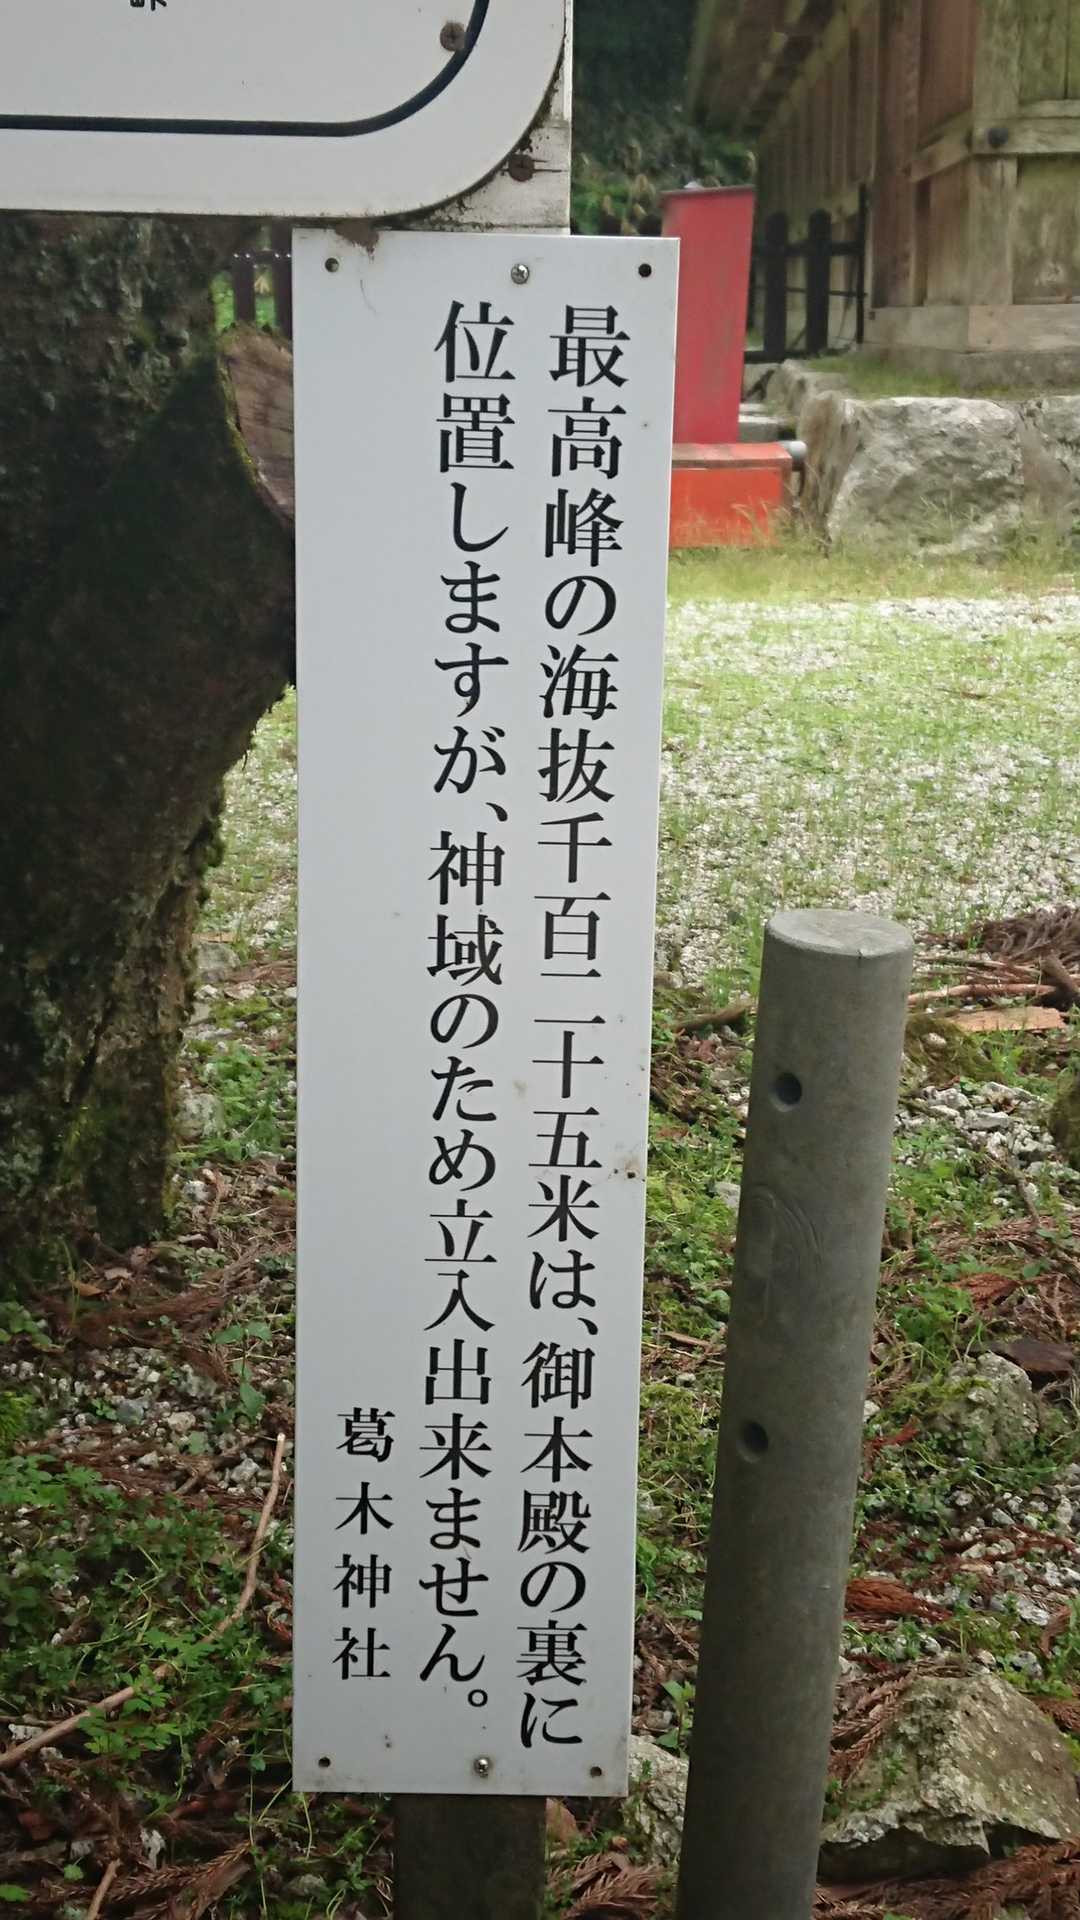 最高峰の海抜千百二十五米は、御本殿の裏に
位置しますが、神域のため立入出来ません。
葛木神社